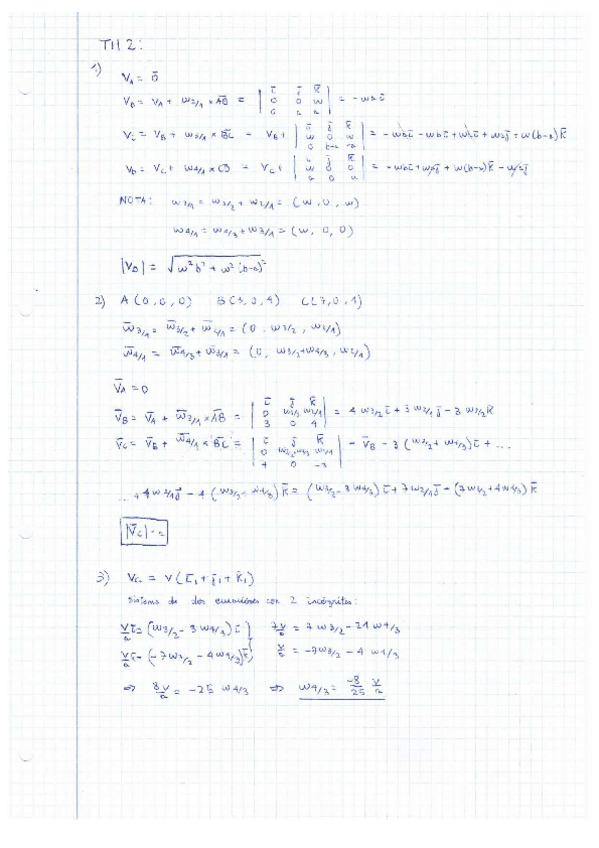 TH 2:
1)
V_A = 0̄
V_B = V_A + ω_2/1 × AB = | ī j̄ k̄ ; 0 0 ω ; 0 a a | = -ωa ī
V_C = V_B + ω_3/1 × BC = V_B + | ī j̄ k̄ ; ω 0 ω ; 0 b-a -a |
V_D = V_C + ω_4/1 × CD = V_C +
NOTA: ω_3/1 = ω_3/2 + ω_2/1 = (ω, 0, ω)
ω_4/1 = ω_4/3 + ω_3/1 = (ω, 0, 0)
|V_D| = √(ω²b² + ω²(b-a)²)
2) A(0,0,0) B(3,0,4) C(7,0,1)
ω̄_3/1 = ω̄_3/2 + ω̄_2/1 = (0, ω_3/2, ω_2/1)
ω̄_4/1 = ω̄_4/3 + ω̄_3/1 = (0, ω_3/2+ω_4/3, ω_2/1)
V̄_A = 0
V̄_B = V̄_A + ω̄_3/1 × AB = | ī j̄ k̄ ; 0 ω_3/2 ω_2/1 ; 3 0 4 | = 4ω_3/2 ī + 3ω_2/1 j̄ - 3ω_3/2 k̄
V̄_C = V̄_B + ω̄_4/1 × BC = = V̄_B - 3(ω_3/2 + ω_4/3) ī + ...
... + 4ω_2/1 j̄ - 4(ω_3/2 + ω_4/3) k̄ = (ω_3/2 - 3ω_4/3) ī + 7ω_2/1 j̄ - (7ω_3/2 + 4ω_4/3) k̄
3) V_C = V(ī_1 + j̄_1 + k̄_1)
Sistema de dos ecuaciones con 2 incógnitas:
V/a ī = (ω_3/2 - 3ω_4/3) ī } 7V/a = 7ω_3/2 - 21ω_4/3
(-7ω_3/2 - 4ω_4/3) k̄ } V/a = -7ω_3/2 - 4ω_4/3
⇒ 8V/a = -25 ω_4/3 ⇒ ω_4/3 = -8/25 V/a